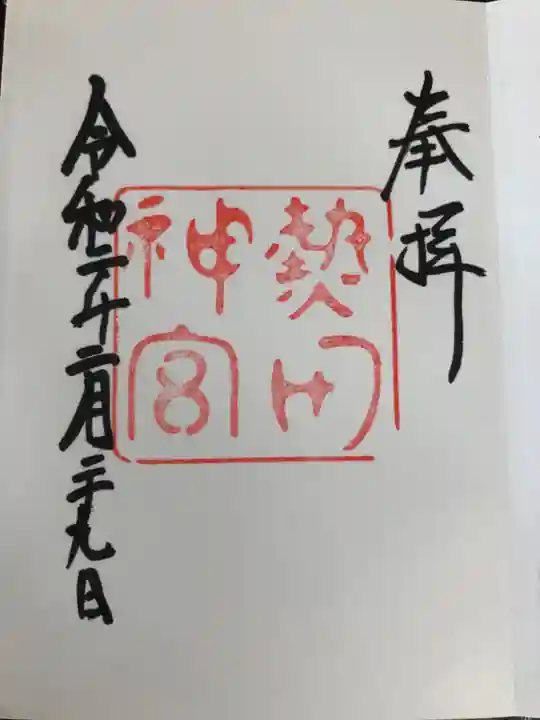 奉拝
熱田
神宮
令和二年十二月二十九日